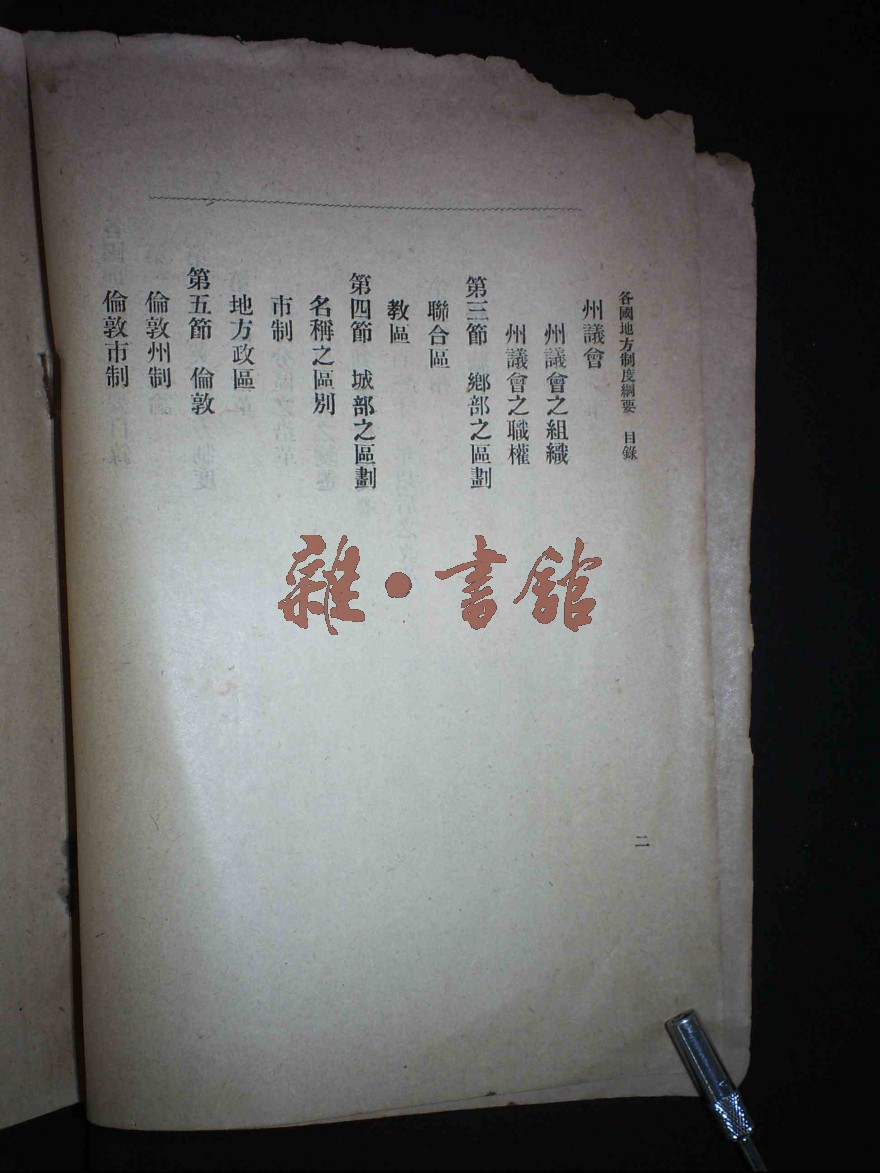 各國地方制度綱要　目錄
二
州議會
州議會之組織
州議會之職權
第三節　鄉部之區劃
聯合區
教區
第四節　城部之區劃
名稱之區別
市制
地方政區
第五節　倫敦
倫敦州制
倫敦市制
雜・書館